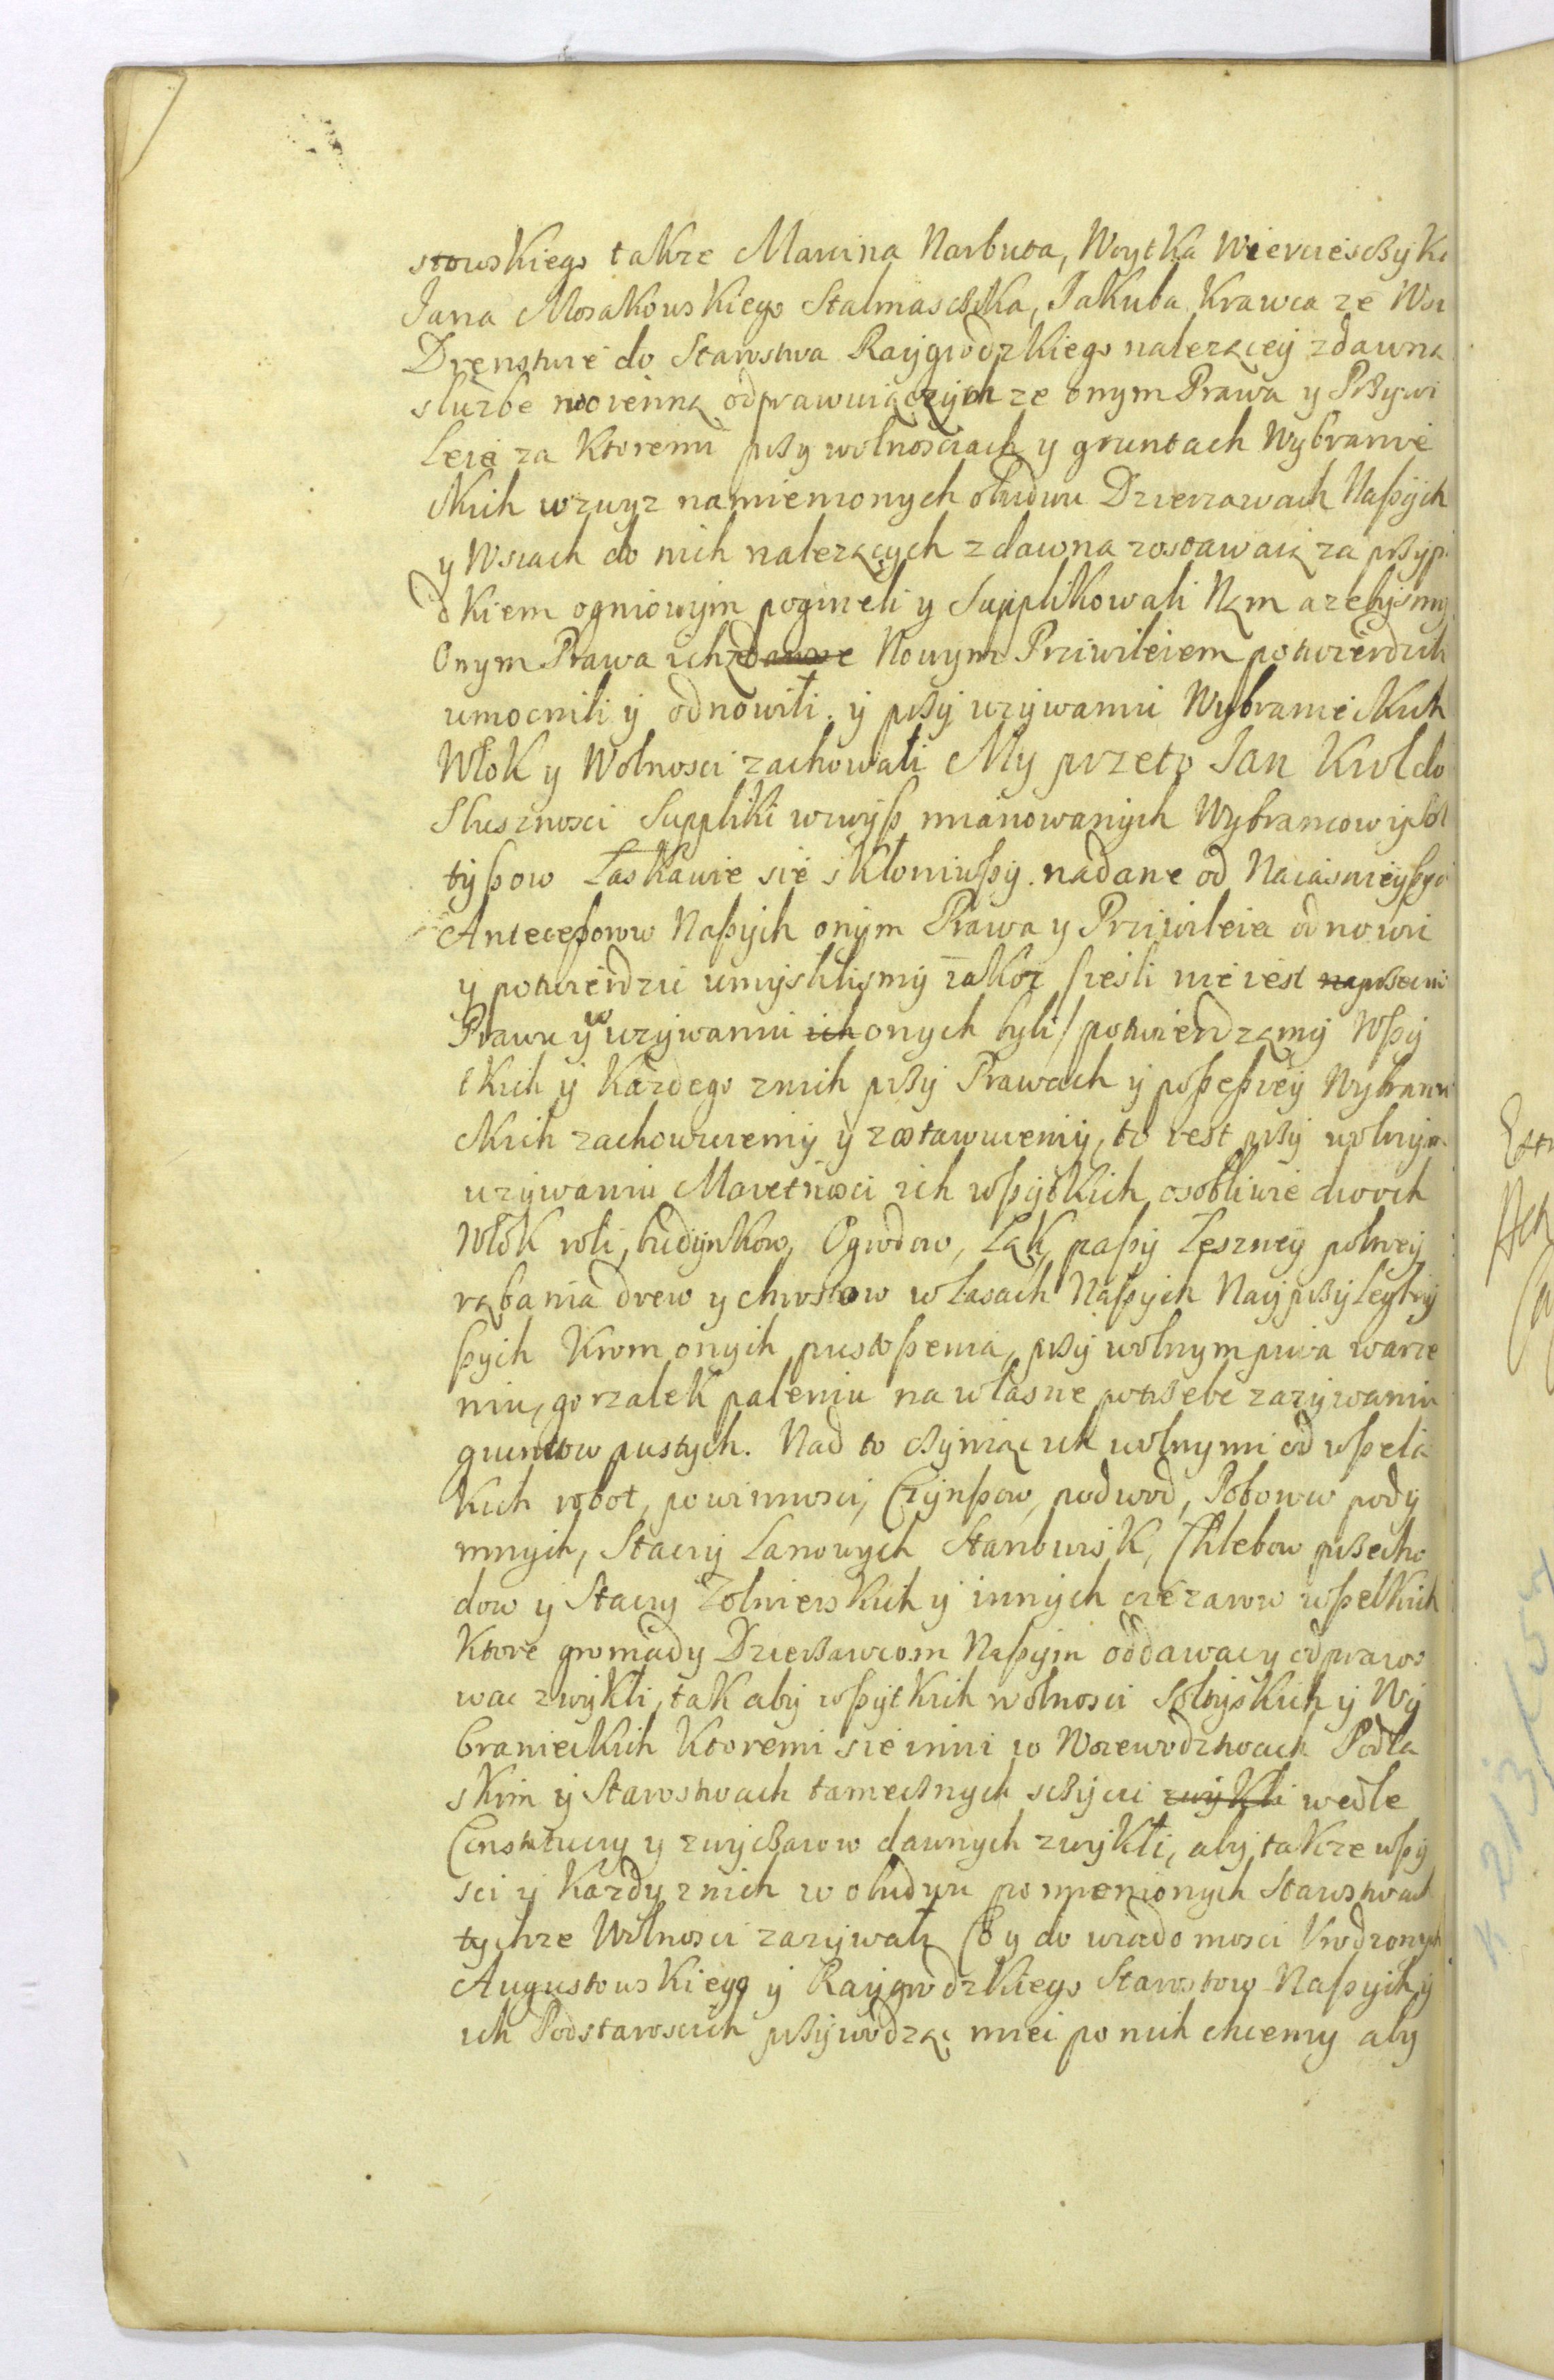 stowskiego takze Marcina Narbuta, Woytka Wiercieschyka
Jana Mosakowskiego Stalmaschka, Jakuba Krawca ze Wsi
Drenstwie do Starostwa Raygrodzkiego nalezącey zdawna
sluzbe woienną odprawuiączych ze onym Prawa y Pßywi
leie za ktoremi pßy wolnosciach y gruntach Wybranie
ckich wzwyz namienionych obudwu Dzierzawach Naßych
y Wsiach do nich nalezących zdawna zostawaią za pßypa
dkiem ogniowym pogineli y Supplikowali Nąm azebysmy
Onym Prawa ich Nowym Priwileiem potwierdzili
umocnili y odnowili. y pßy uzywaniu Wybranieckich
Włok y Wolnosci zachowali My przeto Jan Krol do
Slusznosci Suppliki wzwyß mianowanych Wybrancow y Soł
tyßow Łaskawie sie skłoniwßy. nadane od Naiasnieyßych
Anteceßorow Naßych onym Prawa y Priwileia odnowić
y potwierdzic umyslilismy iakoz /iesli nie iest
Prawu y w uzywaniu onych byli/ potwierdzamy Wßy
tkich y kazdego znich pßy Prawach y poßeßyey Wybranie
ckich zachowuiemy y zostawuiemy, to iest pßy wolnym
uzywaniu Maietnosci ich wßytkich, osobliwie dwoch
Włok roli, budynkow, Ogrodow, Łąk, paßy Leszney polney
rąbania drew y chrostow w Lasach Naßych Naypßyległey
ßych krom onych pustoßenia, pßy wolnym piwa warze
niu, gorzalek paleniu na własne potßebe zazywaniu
gruntow pustych. Nad to cßyniąc ich wolnymi od wßela
kich robot, powinnosci, Czynßow, podwod, Poborow pody
mnych, Stacyi Lanowych Stanowisk, Chlebow pßecho
dow y Stacyi Zolnierskich y innych ciezarow wßelkich
ktore gromady Dzierßawcom Naßym oddawac y odprawo
wac zwykli, tak aby wßytkich wolnosci Soltyskich y Wy
branieckich ktoremi sie inni w Woiewodztwach Podla
skim y Starostwach tamecßnych scßycic zwykli wedle
Constitucyi y zwycßaiow dawnych zwykli, aby takze wßy
sci y kazdy znich w obudwu pomienionych Starostwach
tychze Wolnosci zazywali Co y do wiadomosci Vrodzonych
Augustowskiego y Raygrodzkiego Starostow Naßych y
ich Podstaroscich pßywodząc miec po nich chcemy aby